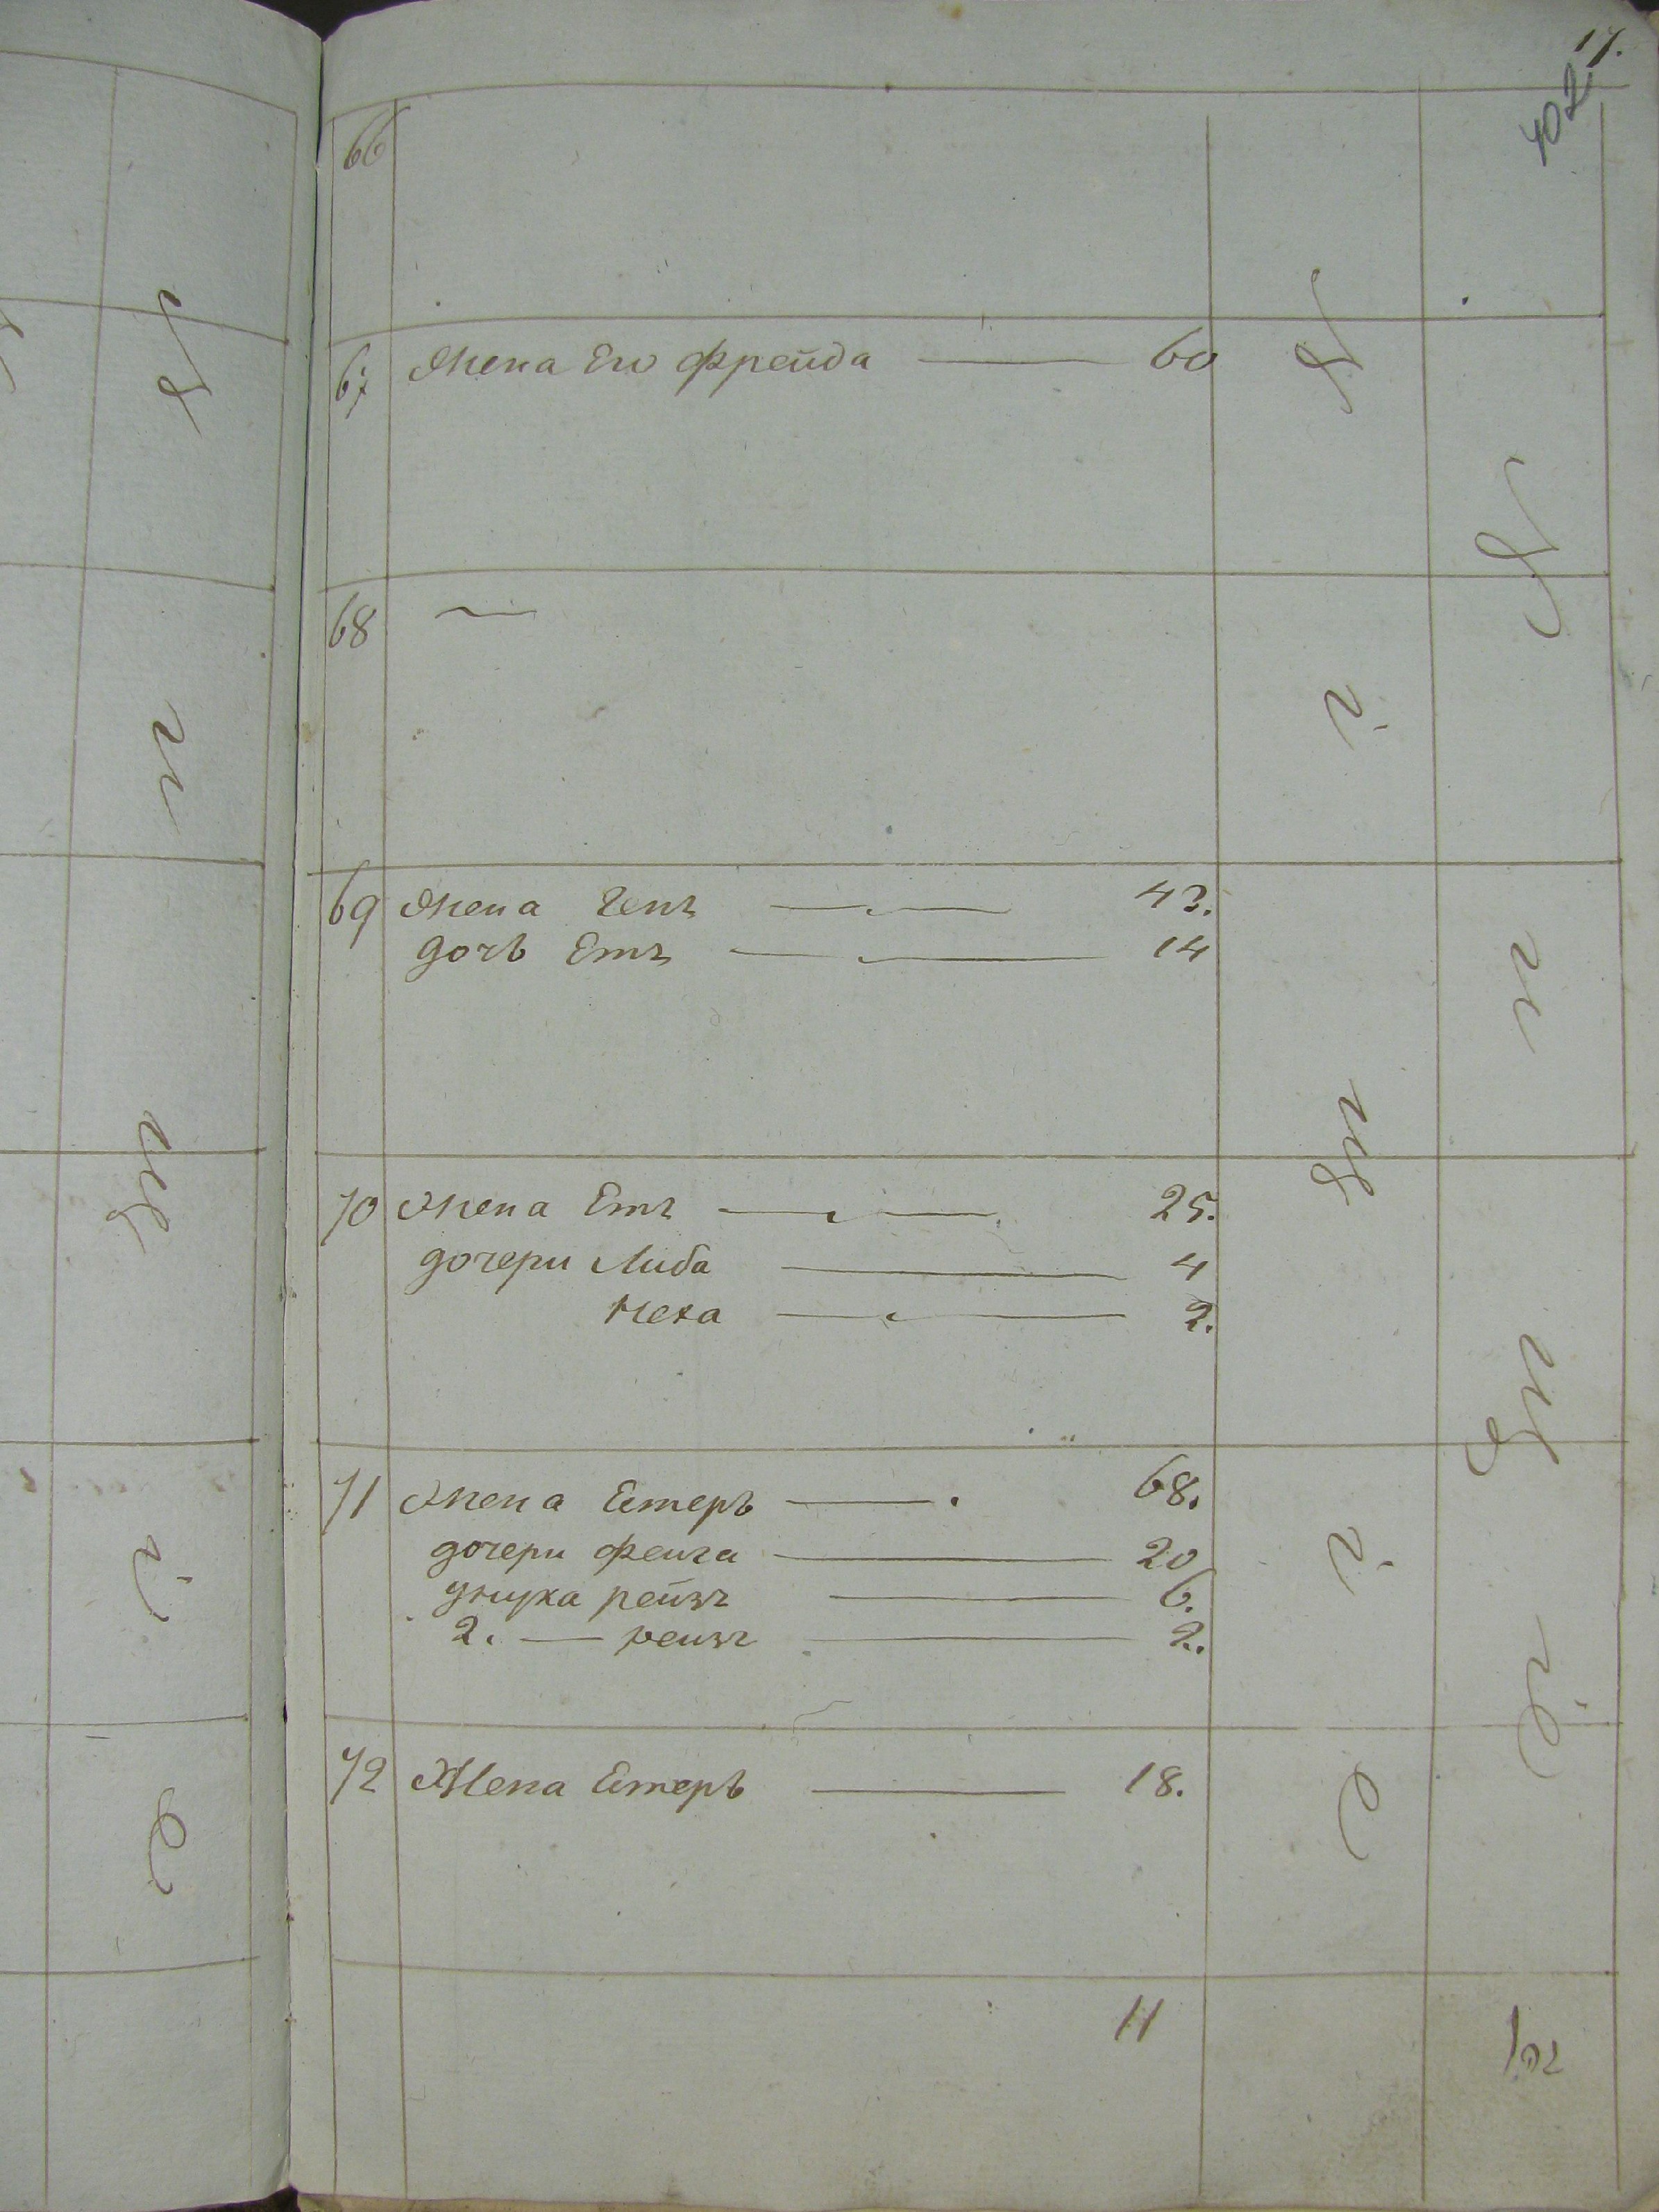 17.
402
66
67 Жена Его Фрейда — 60
68 —
69 Жена Генъ — 43.
дочь Етъ — 14
70 Жена Етъ — 25.
дочери Либа — 4
Неха — 2.
71 Жена Естеръ — 68.
дочери Фейга — 20
унука рейзъ — 6.
2. — рейзъ — 2.
72 Жена Естеръ — 18.
11